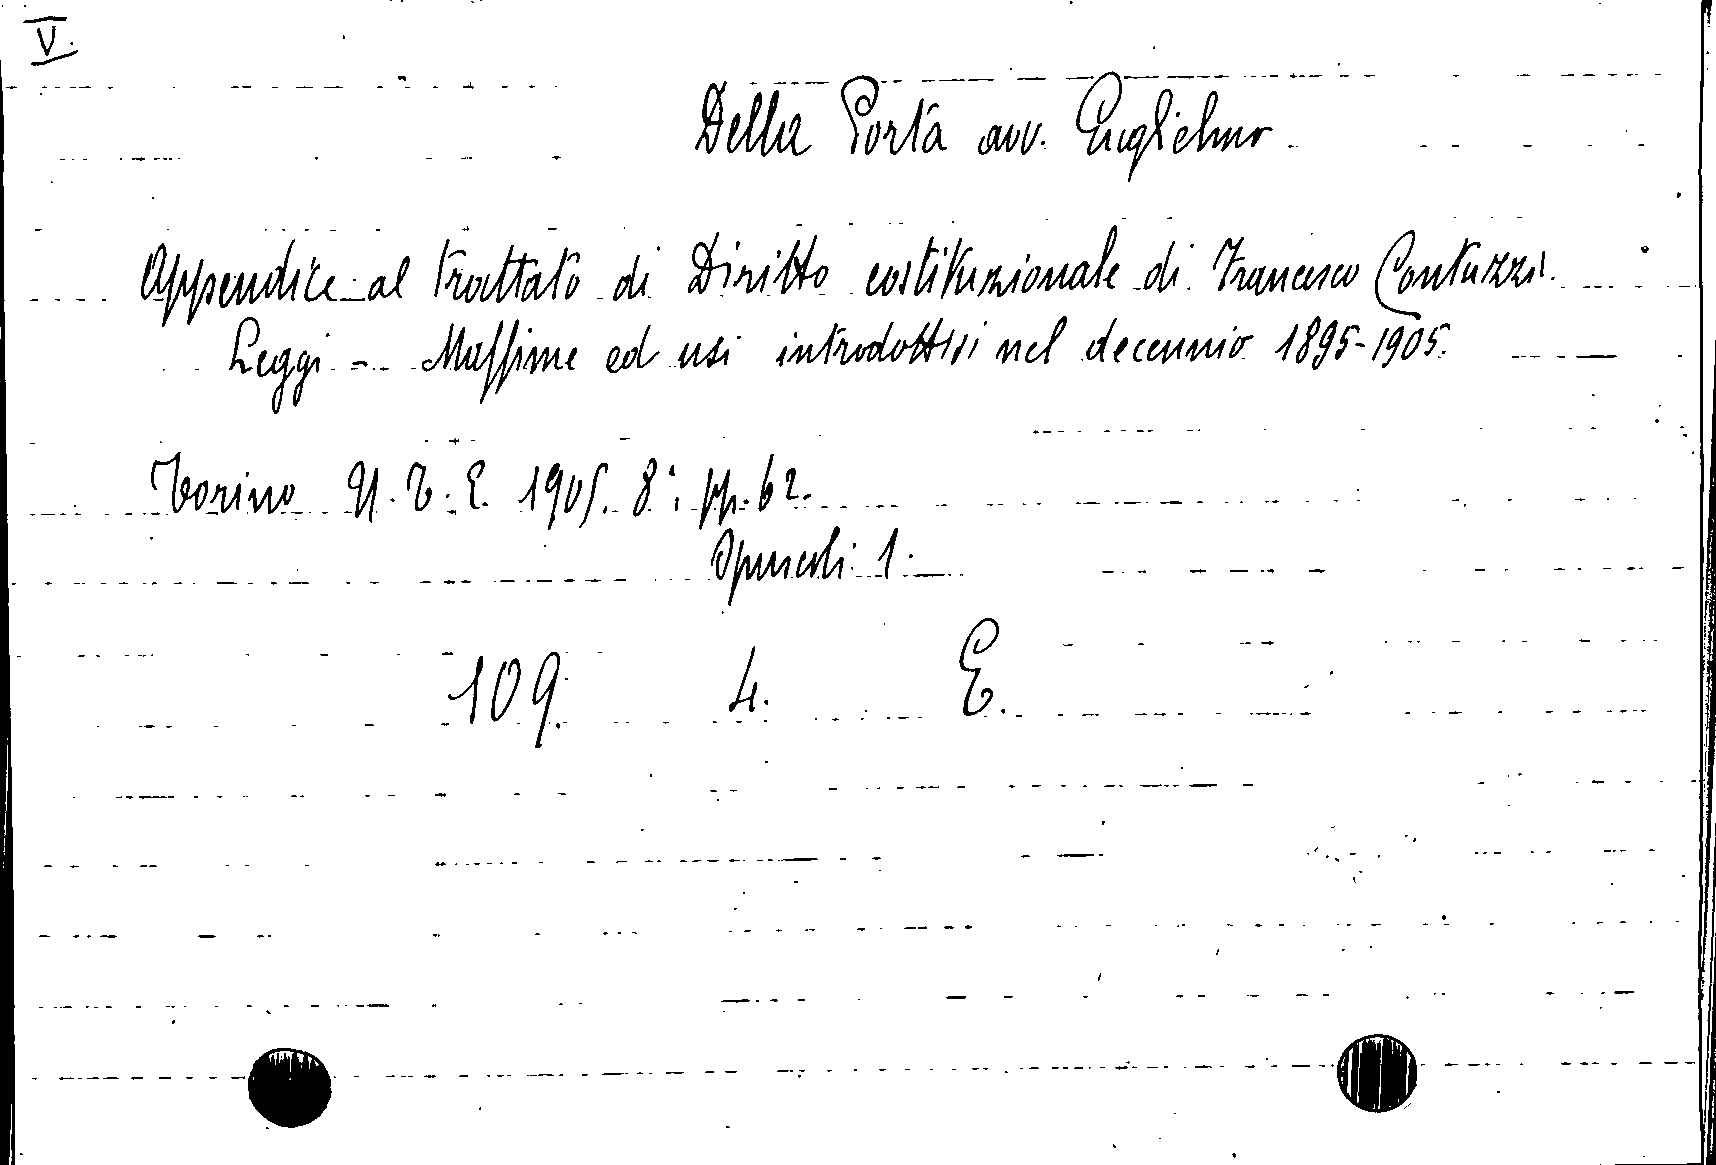 V.
Della Porta avv. Guglielmo
Appendice al trattato di Diritto costituzionale di Francesco Contuzzi.
Leggi - Massime ed usi introdottisi nel decennio 1895-1905.
Torino U. T. E. 1905. 8°. pp. 62.
Opuscoli 1.
109. 4. E.